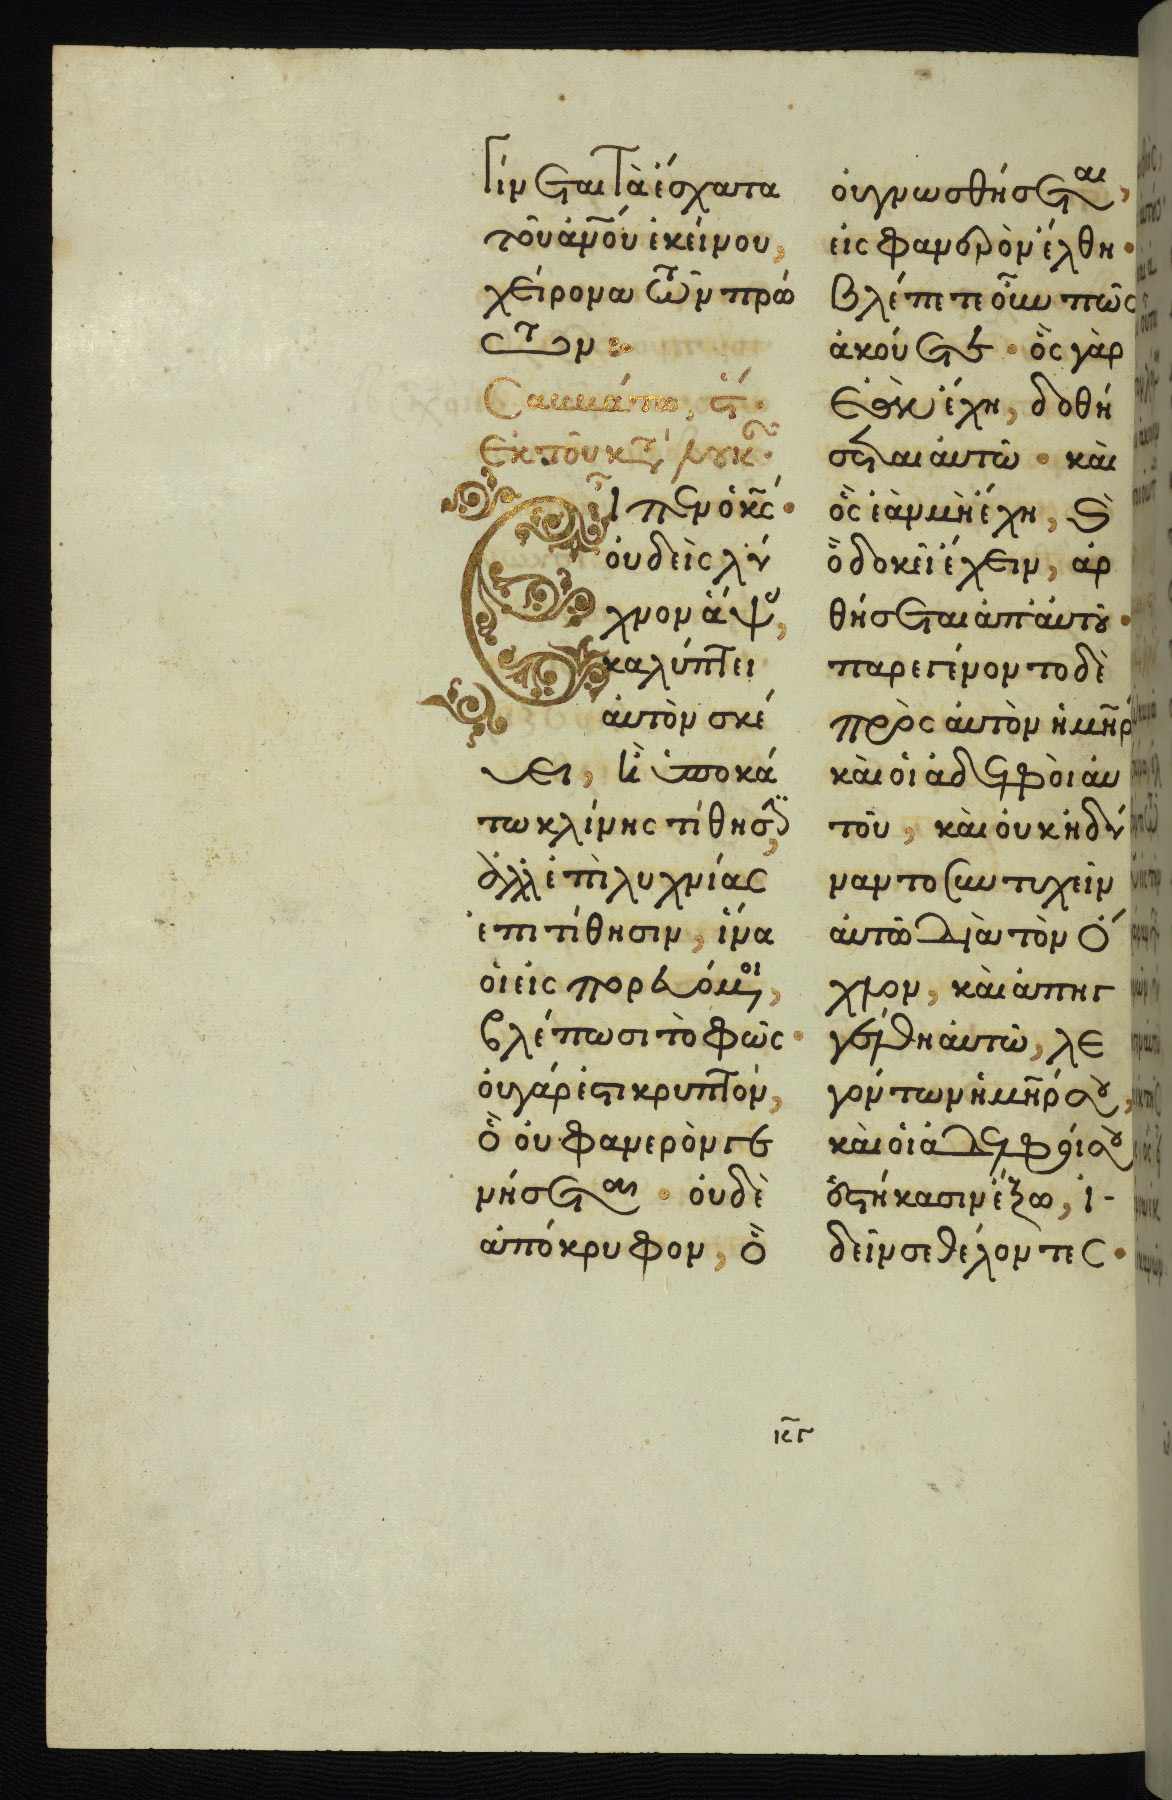 γίνεται τὰ ἔσχατα
τοῦ ἀνοῦ ἐκείνου,
χείρονα τῶν πρώ
των :·
Σαββάτω, ϛ΄.
Ἐκ τοῦ κτ λουκ.
Εἶπεν ὁ κς·
οὐδεὶς λύ
χνον ἅψας,
καλύπτει
αὐτὸν σκέ
υει, ἢ ὑποκά
τω κλίνης τίθησιν,
ἀλλ' ἐπὶ λυχνίας
ἐπιτίθησιν, ἵνα
οἱ εἰσπορευόμενοι,
βλέπωσι τὸ φῶς·
οὐ γάρ ἐστι κρυπτὸν,
ὃ οὐ φανερὸν γε
νήσεται· οὐδὲ
ἀπόκρυφον, ὃ
οὐ γνωσθήσεται,
εἰς φανερὸν ἔλθη·
Βλέπετε οὖν πῶς
ἀκούετε· ὃς γὰρ
ἐὰν ἔχη, δοθή
σεται αὐτῶ· καὶ
ὃς ἐὰν μὴ ἔχη, καὶ
ὃ δοκεῖ ἔχειν, ἀρ
θήσεται ἀπ' αὐτοῦ·
παρεγένοντο δὲ
πρὸς αὐτὸν ἡ μηρ
καὶ οἱ ἀδελφοὶ αυ
τοῦ, καὶ οὐκ ἠδύ
ναντο συντυχεῖν
αὐτῶ διὰ τὸν ὄ
χλον, καὶ ἀπηγ
γέλθη αὐτῶ, λε
γόντων ἡ μηρ σου,
καὶ οἱ ἀδελφοί σου
ἑστήκασιν ἔξω, ἰ-
δεῖν σε θέλοντες·
κγ